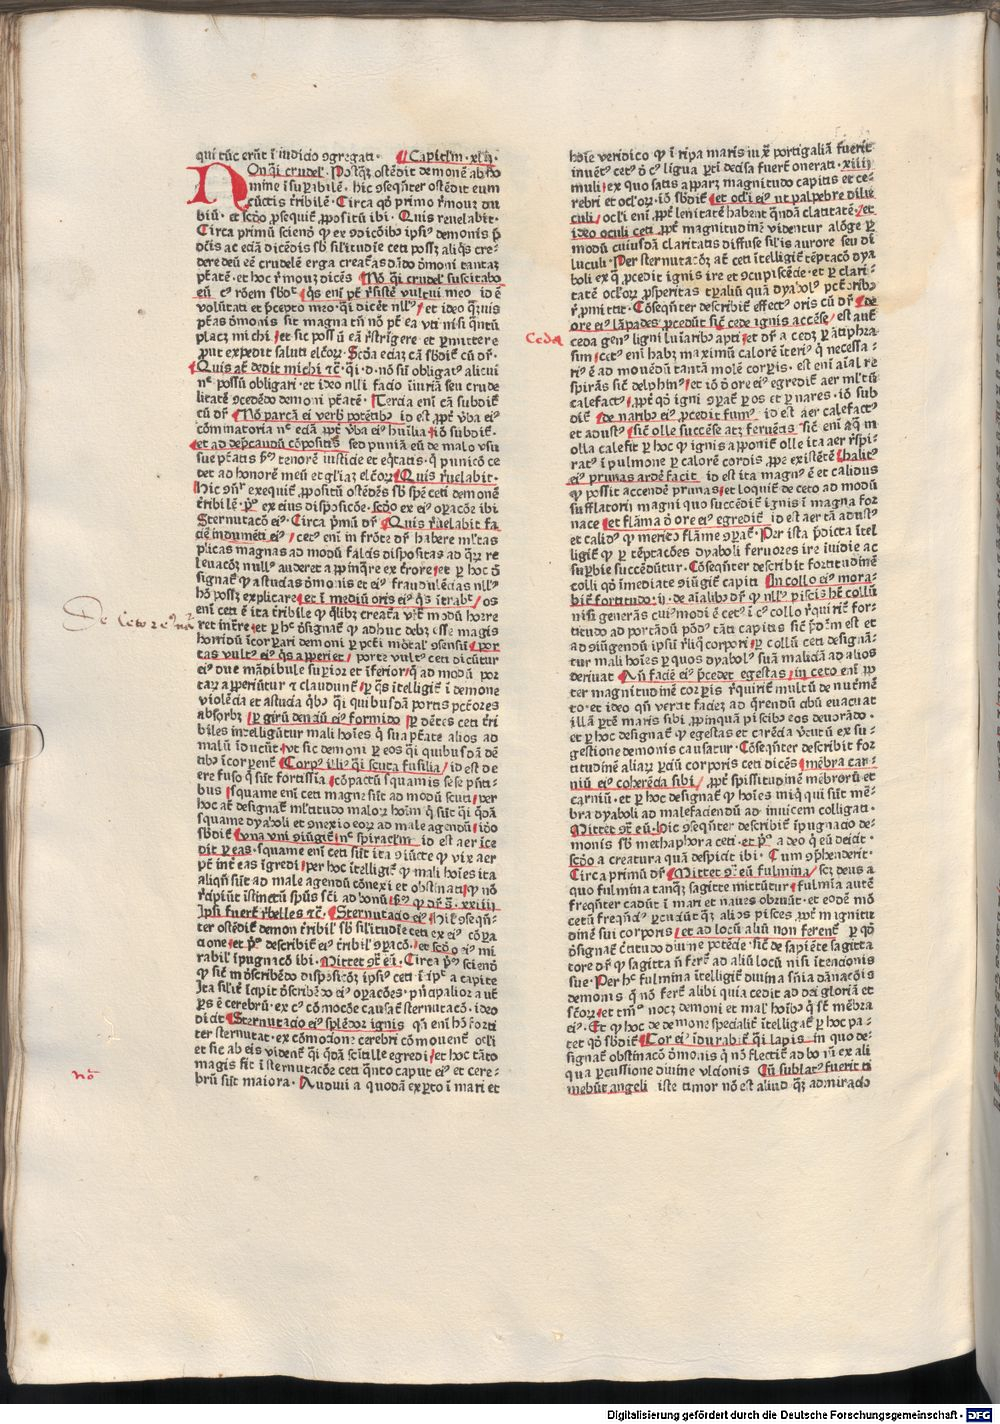 qui tūc erūt ī iudicio ꝯgregati. Capitl'm. xli.
Non q̄i crudel'. Postq̄ ostēdit demonē ab ho
mine īsuꝑibilē. hic ꝯseqn̄ter ostēdit eum
cūctis t̄ribilē. Circa qd̄ primo r̄mouz du
biū. et scd̓o ꝓsequit̄ ꝓpositū ibi. Quis reuelabit.
Circa primū sciend̄ ꝙ ex ꝯdicōibꝰ ipsiꝰ demonis p̄
dc̄is ac edā dicēdis sb̄ sil'itudīe ceti possz aliqs cre-
dere deū eē crudelē erga creat̄as dādo d̓moni tantaz
p̄tātē. et hoc r̄mouz dicēs Nō q̄i crudel' suscitabo
eū
volūtati et p̄cepto meo. qui dicēt et ideo quis
p̄tas d̓monis sit magna tn̄ nō pt̄ ea vti nisi q̄ntū
placz michi, et sic possū eā r̄strīgere et ꝑmittere
ꝓut expedit saluti elc̄oꝝ. Scd̓a edaz cā sb̄dit̄ cū dr̄.
Quis añ dedit michi ꝛc̄. q̄i. d. nō sū obligatꝰ alicui
nec possū obligari. et ideo nlli facio iniuriā seu crude
litatē ꝯcedēdo demoni p̄tātē. Tercia eni cā subdit̄
cū dr̄ Nō parcā ei verb' potētibꝰ id est ꝓpt̄ v̄ba eiꝰ
cōminatoria nec edā ꝓpt̄ v̄ba eiꝰ huīlia, iō subdit̄.
et ad dep̄candū cōpositis sed puniā eū de malo vsu
sue p̄tatis tenorē iusticie et eq̄tatis. q̄ punicō ce
det ad honorē meū et gl'iaz elc̄oꝝ Quis r̄uelabit.
Hic exequit̄ ꝓpositū ostēdēs sb̄ spē ceti demonē
t̄ribilē. pͦ. ex eius disposicōe. scd̓o ex eiꝰ oꝑacōe ibi
Sternutacō eiꝰ. Circa p̄mū dr̄ Quis r̄uelabit fa
ciē indumēti eiꝰ, cetꝰ eni in frōte dr̄ habere ml'tas
plicas magnas ad modū falcis dispositas ad q̄ꝝ re
leuacōꝫ nullꝰ auderet appīnq̄re ex t̄rore, et ꝑ hoc d̓
signat̄ ꝙ astucias d̓monis et eiꝰ fraudulēcias nllꝰ
hō possz explicare, et ī mediū oris eiꝰ q̄s ītrabit, os
eni ceti ē ita t̄ribile ꝙ q̄libz creat̄a
ret int̄re, et ꝑ hͨ d̓signat̄ ꝙ adhuc debz esse magis
horridū īcorꝑari demoni ꝑ pct̄i mōtal' ꝯsensū, por
tas vultꝰ eiꝰ q̄s apperiet, porte vultꝰ ceti dicūtur
eiꝰ due mādibule suꝑior et īferior, q̄ ad modū por
taꝝ apperiūtur ꝛ claudunt̄, ꝑ qs̄ ītelligit̄ ī demone
violēcia et astucia q̄bꝰ q̄i quibusdā portis pct̄ores
absorbz, ꝑ girū denciū eiꝰ formido ꝑ dētes ceti t̄ri
biles intelligūtur mali hoīes q̄ sua p̄tate alios ad
malū īducūt, vt sic demoni ꝑ eos q̄i quibusdā dē
tibꝰ īcorꝑent̄ Corpꝰ illiꝰ q̄i scuta fusilia, id est de
ere fuso q̄ sūt fortissīa, cōpactū squamis sese p̄mē-
bus, squame eni ceti magne sūt ad modū scuti, ꝑer
hoc añt designat̄ ml'titudo maloꝝ hoīm q̄ sūt q̄i q̄dā
squame dyaboli et ꝯnexio eoꝝ ad male agendū, iō
sb̄dit̄ vna vni ꝯiūgit̄, nec spiracl'm id est aer īce
dit ꝑ eas. squame eni ceti sūt ita ꝯiūcte ꝙ vix aer
pt̄ int̄ eas īgredi, ꝑer hoc ītelligit̄ ꝙ mali hoīes ita
aliqn̄ sūt ad male agendū cōnexi et obstinati, ꝙ nō
r̄cipiūt īstinctū spūs sct̄i ad bonū xxiiii
Ipsi fuerūt r̄belles ꝛc̄. Sternutacio eiꝰ Hic ꝯseqn̄-
ter ostēdit̄ demon t̄ribil' sb̄ sil'itudīe ceti ex eiꝰ cōꝑa
cione, et pͦ. describit̄ eiꝰ t̄ribil' oꝑacō. et scd̓o eiꝰ mi
rabil' īpugnacō ibi. Mittet ꝯͣ eū. Circa pͦ. sciend̄
ꝙ sic̄ in d̓scribēdo disposicōꝫ ipsiꝰ ceti īcipit a capite
Ita sil'it̄ īcipit d̓scribēdo eiꝰ oꝑacōes. pn̄cipalior añt
ꝑs ē cerebrū. ex cꝰ cōmocōe causat̄ sternutacō. ideo
dicit Sternutacio eiꝰ splēdor ignis qn̄ eni hō forti
ter sternutat. ex cōmocione cerebri cōmouent̄ ocl'i
et sic ab eis vident̄ q̄i q̄dā scītille egredi, et hoc tāto
magis fit ī sternutacōe ceti q̄nto caput eiꝰ et cere-
brū sūt maiora. Audiui a quodā exꝑto ī mari et
De cetore
nō
hoīe veridico ꝙ ī ripa maris iuxͣ portigaliā fuerit
inuētꝰ cetꝰ d̓ cꝰ ligua ꝑti decisa fuerūt onerati. xiiii
muli, ex quo satis apparz magnitudo capitis et ce-
rebri et ocl'oꝝ. iō sb̄dit̄, et ocl'i eiꝰ ut palpebre dilu
culi, ocl'i eni ꝓpt̄ lenitatē habent q̄ndā claritatē, et
ideo oculi ceti ꝓpt̄ magnitudinē videntur alōge ꝑ
modū cuiusdā claritatis diffuse sil'is aurore seu di
luculi. Per sternutacōꝫ añt ceti ītelligit̄ tēptacō dya
boli ex q̄ ꝓcedit ignis ire et ꝯcupiscēcie. et ꝑ clari-
tatē ocl'oꝝ ꝓsperitas tꝑaliū quā dyabolꝰ pct̄oribꝰ
r̄ꝓmittit. Cōseqn̄ter describit̄ effectꝰ oris cū dr̄, de
ore eiꝰ lāpades ꝓcedūt sic̄ cede ignis accēse, est aut̄
Ceda
ceda genꝰ ligni luīaribꝰ apti, et dr̄ a cedꝫ ꝑ ātiphra
sim, cetꝰ eni habz maximū calorē īteriꝰ q̄ necessa-
riꝰ ē ad mouēdū tantā molē corꝑis. est eni aīal re
spirās sic̄ delphinꝰ, et iō d̓ ore eiꝰ egredit̄ aer ml'tū
calefactꝰ, ꝓpt̄ qd̄ igni ꝯꝑat̄ ꝑ os et ꝑ nares. iō sub
dit̄. de naribꝰ eiꝰ ꝓcedit fumꝰ id est aer calefactꝰ
et adustꝰ, sic̄ olle succēse atqꝫ feruētis sic̄ eni aq̄ in
olla calefit ꝑ hoc ꝙ ignis apponit̄ olle ita aer r̄spi-
ratꝰ ī pulmone ꝑ calorē cordis ꝓpe existētē, halitꝰ
eiꝰ prunas ardē facit id est ita magnꝰ ē et calidus
ꝙ possit accendē prunas, et loquit̄ de ceto ad modū
sufflatorii magni quo succēdit̄ ignis ī magna for
nace, et flāma d̓ ore eiꝰ egredit̄ id est aer tā adustꝰ
et calidꝰ ꝙ merito flāme ꝯꝑat̄. Per ista p̄dicta ītel
ligit̄ ꝙ ꝑ tēptacōes dyaboli feruores ire īuidie ac
suꝑbie succēdūtur. Cōseqn̄ter describit fortitudinē
colli qd̄ īmediate ꝯiūgit̄ capiti In collo eiꝰ mora-
bit̄ fortitudo. ii. de aīalibꝰ dr̄ ꝙ nllꝰ piscis hꝫ collū
nisi generās cuiꝰmodi ē cetꝰ ī cꝰ collo r̄quirit̄ for-
titudo ad portādū pōdꝰ tāti capitis sic̄ p̄dcm̄ est et
ad ꝯiūgendū ipsū r̄liq̄ corꝑi, ꝑ collū ceti designā-
tur mali hoīes ꝑ quos dyabolꝰ suā maliciā ad alios
deriuat Añ faciē eiꝰ p̄cedet egestas, in ceto eni ꝓp
ter magnitudinē corꝑis r̄quirit̄ multū de nut̄mē
to. et ideo qn̄ verat faciez ad q̄rendū cibū euacuat
illā ꝑtē maris sibi ꝓpinquā piscibꝰ eos deuorādo.
et ꝑ hoc designat̄ ꝙ egestas et carēcia v̄tutū ex su-
gestione demonis causatur. Cōseqn̄ter describit for
titudinē aliaꝝ ꝑciū corꝑis ceti dicēs, mēbra car-
niū eiꝰ coherēcia sibi, ꝓpt̄ spissitudinē mēbroꝝ et
carniū. et ꝑ hoc designat̄ ꝙ hoīes iniq̄ qui sūt mē-
bra dyaboli ad malefaciendū ad inuicem colligati.
Mittet ꝯͣ eū. Hic ꝯseqn̄ter describit̄ īpugnacio de-
monis sb̄ methaphora ceti. et pͦ. a deo q̄ eū deicit.
scd̓o a creatura quā despicit ibi. Cum ꝯp̄henderit.
Circa primū dr̄, Mittet ꝯͣ eū fulmina, scꝫ deus a
quo fulmina tanqꝫ sagitte mittūtur, fulmīa autē
freqn̄ter cadūt ī mari et naues obruūt. et eodē mō
cetū freqn̄ciꝰ ꝑcuciūt q̄ꝫ alios pisces, ꝓpt̄ mignitu
dinē sui corꝑis, et ad locū aliū non ferent̄ ꝑ qd̄
d̓signat̄ c̄titudo diuīe potēcie. sic̄ de sapiēte sagitta
tore dr̄ ꝙ sagitta nō fert̄ ad aliū locū nisi ītencionis
sue. Per hͨ fulmina ītelligit̄ diuina sn̄īa dānacōis
demonis q̄ nō fert̄ alibi quia cedit ad dei gloriā et
sc̄oꝝ, et tm̄ nocꝫ demoni et mal' hoībꝰ q̄ st̄ mēbra
eiꝰ. Et ꝙ hoc de demone specialit̄ ītelligat̄ ꝑ hoc pa-
tet qd̄ sb̄dit̄, Cor eiꝰ īdurabit̄ q̄i lapis in quo de-
signat̄ obstinacō d̓monis q̄ nō flectit̄ ad bonū ex ali
qua ꝑcussione diuine vlcionis Cū sublatꝰ fuerit ti
mebūt angeli iste timor nō est aliud q̄ꝫ admiracio
Digitalisierung gefördert durch die Deutsche Forschungsgemeinschaft - DFG